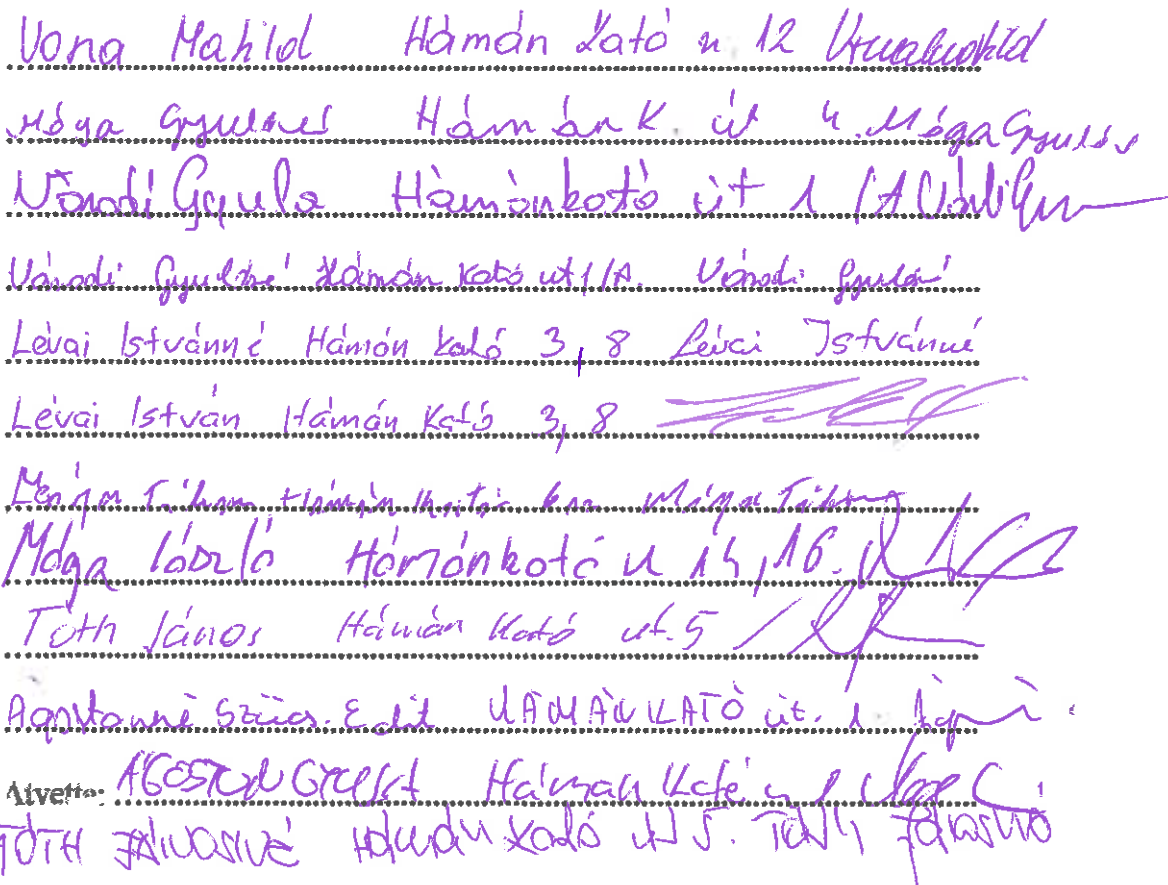 Vona Mahild Hámán Kató u 12
Móga Gyuláné Hámán K. út 4. Móga Gyuláné
Váradi Gyula Hámánkató út 1/A
Váradi Gyuláné Hámán Kató út 1/A. Váradi Gyuláné
Lévai Istvánné Hámán Kató 3,8 Lévai Istvánné
Lévai István Hámán Kató 3,8
Hámán
Móga László Hámánkató u 14,16.
Tóth János Hámán Kató út. 5
Ágostonné Szücs. Edit HÁMÁN KATÓ út. 1.
Átvette: ÁGOSTON Hámán Kató u 1
TÓTH JÁNOSNÉ Hámán Kató út 5. Tóth Jánosné